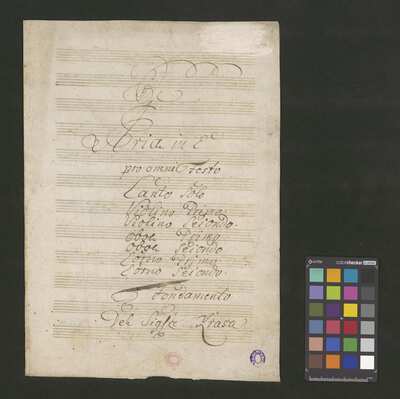 Aria in C
pro omni Festo
Canto Solo
Violino Primo
Violino Secondo
Oboe Primo
Oboe Secondo
Corno Primo
Corno Secondo
Fondamento
Del Sigre
colorchecker